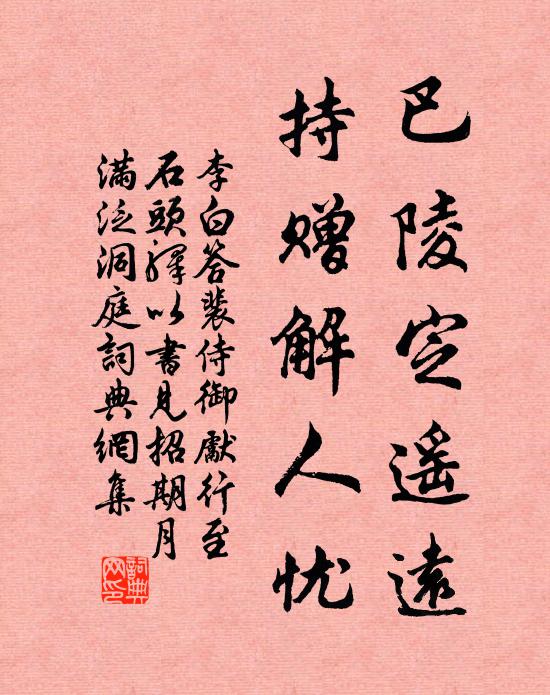 巴陵定遥遠
持赠解人忧
李白答裴侍御獻行至
石頭驛以書見招期月
滿泛洞庭詞典網集
詞典
网印